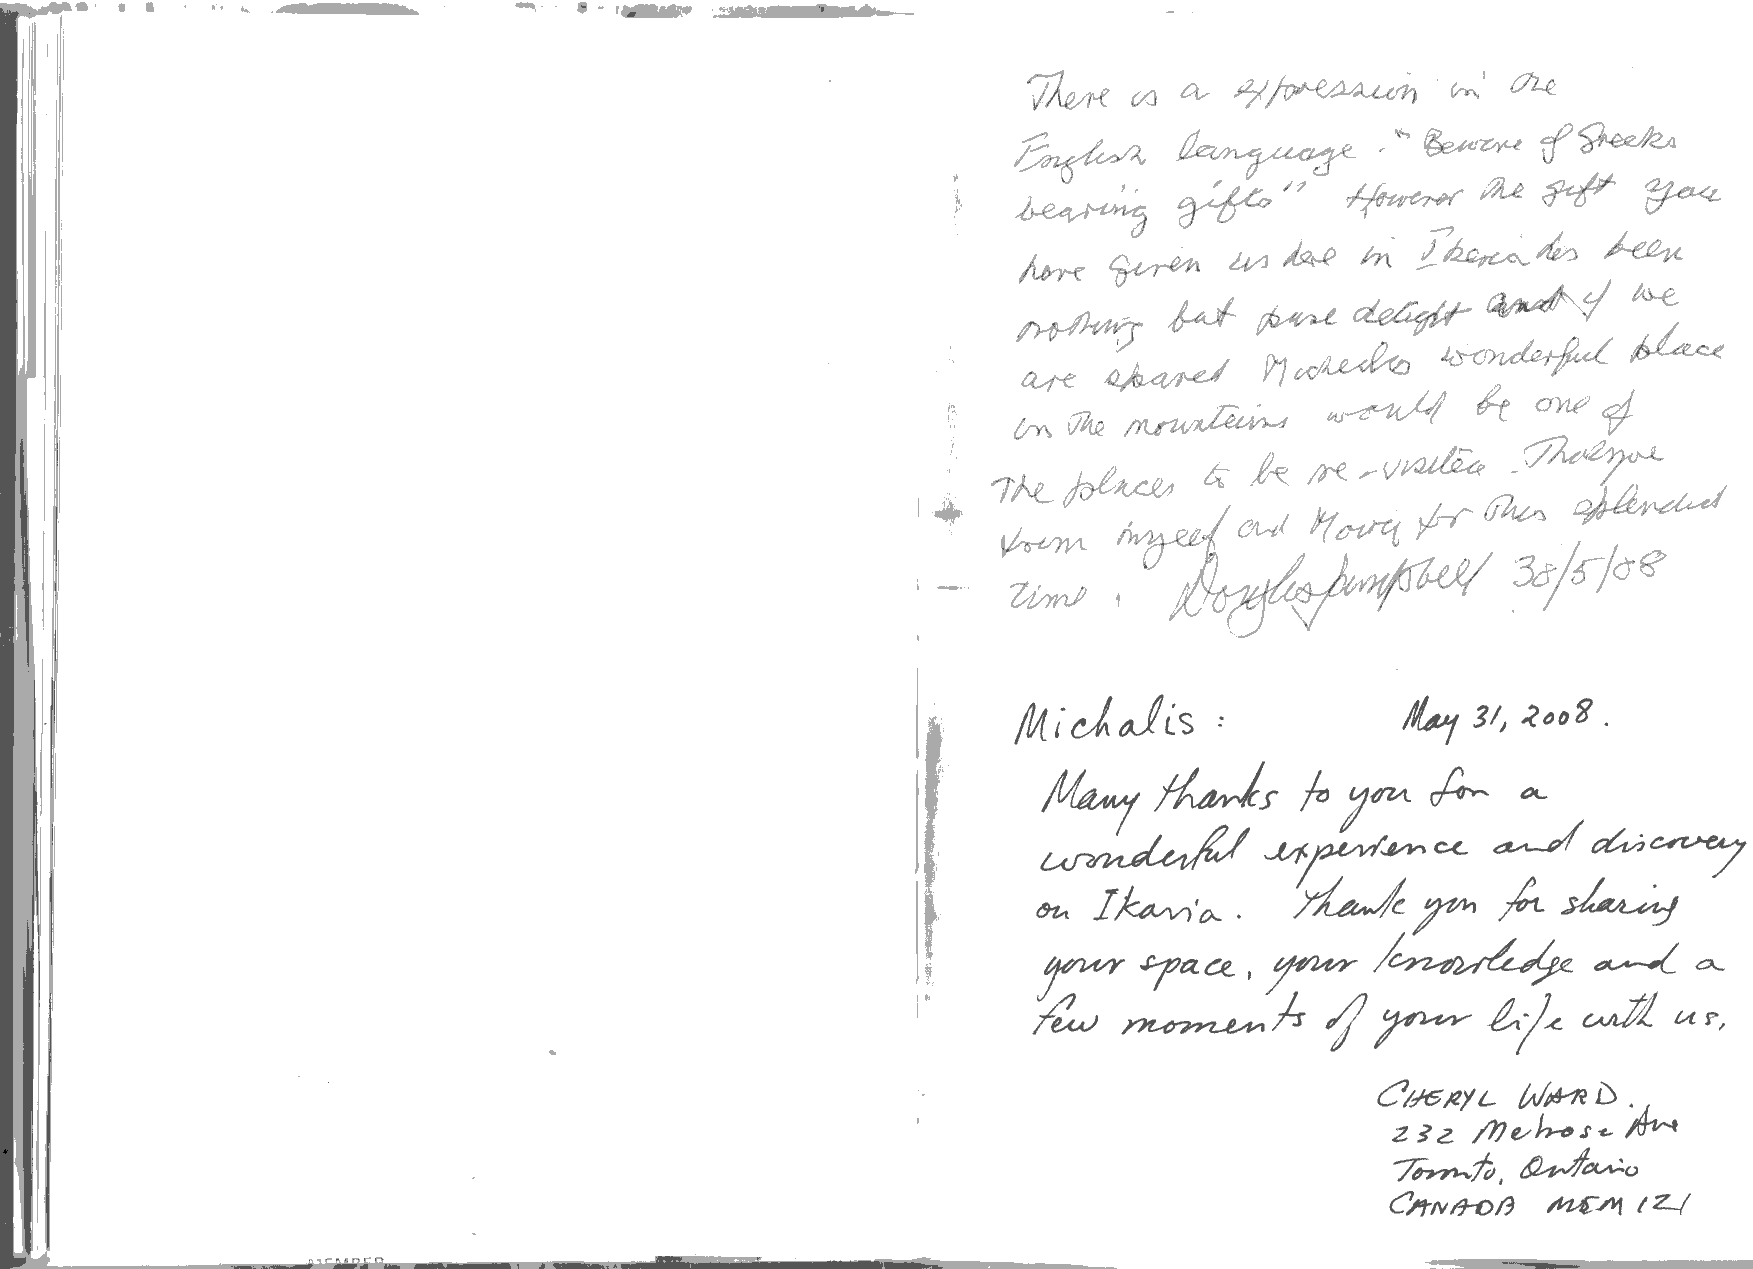 There is a expression in the
English language. "Beware of Greeks
bearing gifts" However the gift you
have given us here in Ikeria has been
nothing but pure delight and if we
are spared wonderful place
in the mountains would be one of
The places to be re-visited. Thank you
from myself and for this splendid
time. Douglas 30/5/08
Michalis: May 31, 2008.
Many thanks to you for a
wonderful experience and discovery
on Ikaria. Thank you for sharing
your space, your knowledge and a
few moments of your life with us.
CHERYL WARD.
232 Melrose Ave
Toronto, Ontario
CANADA M5M 1Z1